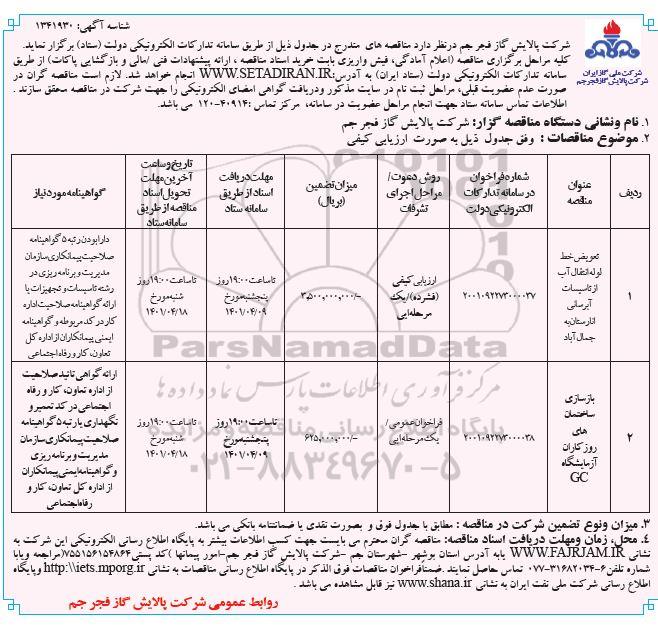 شناسه آگهی: ۱۳۴۱۹۳۰
شرکت ملی گاز ایران
شرکت پالایش گاز فجر جم
شرکت پالایش گاز فجر جم درنظر دارد مناقصه های مندرج در جدول ذیل از طریق سامانه تدارکات الکترونیکی دولت (ستاد) برگزار نماید.
کلیه مراحل برگزاری مناقصه (اعلام آمادگی، فیش واریزی بابت خرید اسناد مناقصه ، ارائه پیشنهادات فنی /مالی و بازگشایی پاکات) از طریق
سامانه تدارکات الکترونیکی دولت (ستاد ایران) به آدرس:WWW.SETADIRAN.IR انجام خواهد شد. لازم است مناقصه گران در
صورت عدم عضویت قبلی، مراحل ثبت نام در سایت مذکور ودریافت گواهی امضای الکترونیکی را جهت شرکت در مناقصه محقق سازند .
اطلاعات تماس سامانه ستاد جهت انجام مراحل عضویت در سامانه، مرکز تماس :۴۰۹۱۴-۱۲۰ می باشد.
۱. نام ونشانی دستگاه مناقصه گزار: شرکت پالایش گاز فجر جم
۲. موضوع مناقصات : وفق جدول ذیل به صورت ارزیابی کیفی
ردیف
عنوان مناقصه
شماره فراخوان در سامانه تدارکات الکترونیکی دولت
روش دعوت/ مراحل اجرای تشرفات
میزان تضمین (بریال)
مهلت دریافت اسناد از طریق سامانه ستاد
تاریخ و ساعت آخرین مهلت تحویل اسناد مناقصه از طریق سامانه ستاد
گواهینامه مورد نیاز
۱
تعویض خط لوله انتقال آب از تاسیسات آبرسانی انارستان به جمال آباد
۲۰۰۱۰۹۲۲۷۳۰۰۰۰۳۷
ارزیابی کیفی (فشرده)/یک مرحله ایی
۳,۵۰۰,۰۰۰,۰۰۰/-
تا ساعت ۱۹:۰۰ روز پنجشنبه مورخ ۱۴۰۱/۰۴/۰۹
تا ساعت ۱۹:۰۰ روز شنبه مورخ ۱۴۰۱/۰۴/۱۸
دارا بودن رتبه ۵ گواهینامه صلاحیت پیمانکاری سازمان مدیریت و برنامه ریزی در رشته تاسیسات و تجهیزات یا ارائه گواهینامه صلاحیت اداره کار در کد مربوطه و گواهینامه ایمنی پیمانکاران از اداره کل تعاون، کار و رفاه اجتماعی
۲
بازسازی ساختمان های روزکاران آزمایشگاه GC
۲۰۰۱۰۹۲۲۷۳۰۰۰۰۳۸
فراخوان عمومی/ یک مرحله ایی
۶۲۵,۰۰۰,۰۰۰/-
تا ساعت ۱۹:۰۰ روز پنجشنبه مورخ ۱۴۰۱/۰۴/۰۹
تا ساعت ۱۹:۰۰ روز شنبه مورخ ۱۴۰۱/۰۴/۱۸
ارائه گواهی تائید صلاحیت از اداره تعاون، کار و رفاه اجتماعی در کد تعمیر و نگهداری یا رتبه ۵ گواهینامه صلاحیت پیمانکاری سازمان مدیریت و برنامه ریزی و گواهینامه ایمنی پیمانکاران از اداره کل تعاون، کار و رفاه اجتماعی
ParsNamadData
مرکز فرآوری اطلاعات پارس نماد داده ها
پایگاه اطلاع رسانی مناقصه و مزایده
۰۲۱-۸۸۳۴۹۶۷۰-۵
۳. میزان ونوع تضمین شرکت در مناقصه : مطابق با جدول فوق و بصورت نقدی یا ضمانتنامه بانکی می باشد.
۴. محل، زمان ومهلت دریافت اسناد مناقصه: مناقصه گران محترم می بایست جهت کسب اطلاعات بیشتر به پایگاه اطلاع رسانی الکترونیکی این شرکت به
نشانی WWW.FAJRJAM.IR یابه آدرس استان بوشهر –شهرستان جم –شرکت پالایش گاز فجر جم-امور پیمانها )کد پستی۷۵۵۱۵۶۱۵۴۸۶۴(مراجعه ویابا
شماره تلفن۶-۳۱۶۸۲۰۳۴-۰۷۷ تماس حاصل نمایند .ضمنا فراخوان مناقصات فوق الذکر در پایگاه اطلاع رسانی مناقصات به نشانی http:\\iets.mporg.ir وپایگاه
اطلاع رسانی شرکت ملی نفت ایران به نشانی www.shana.ir نیز قابل مشاهده می باشد .
روابط عمومی شرکت پالایش گاز فجر جم